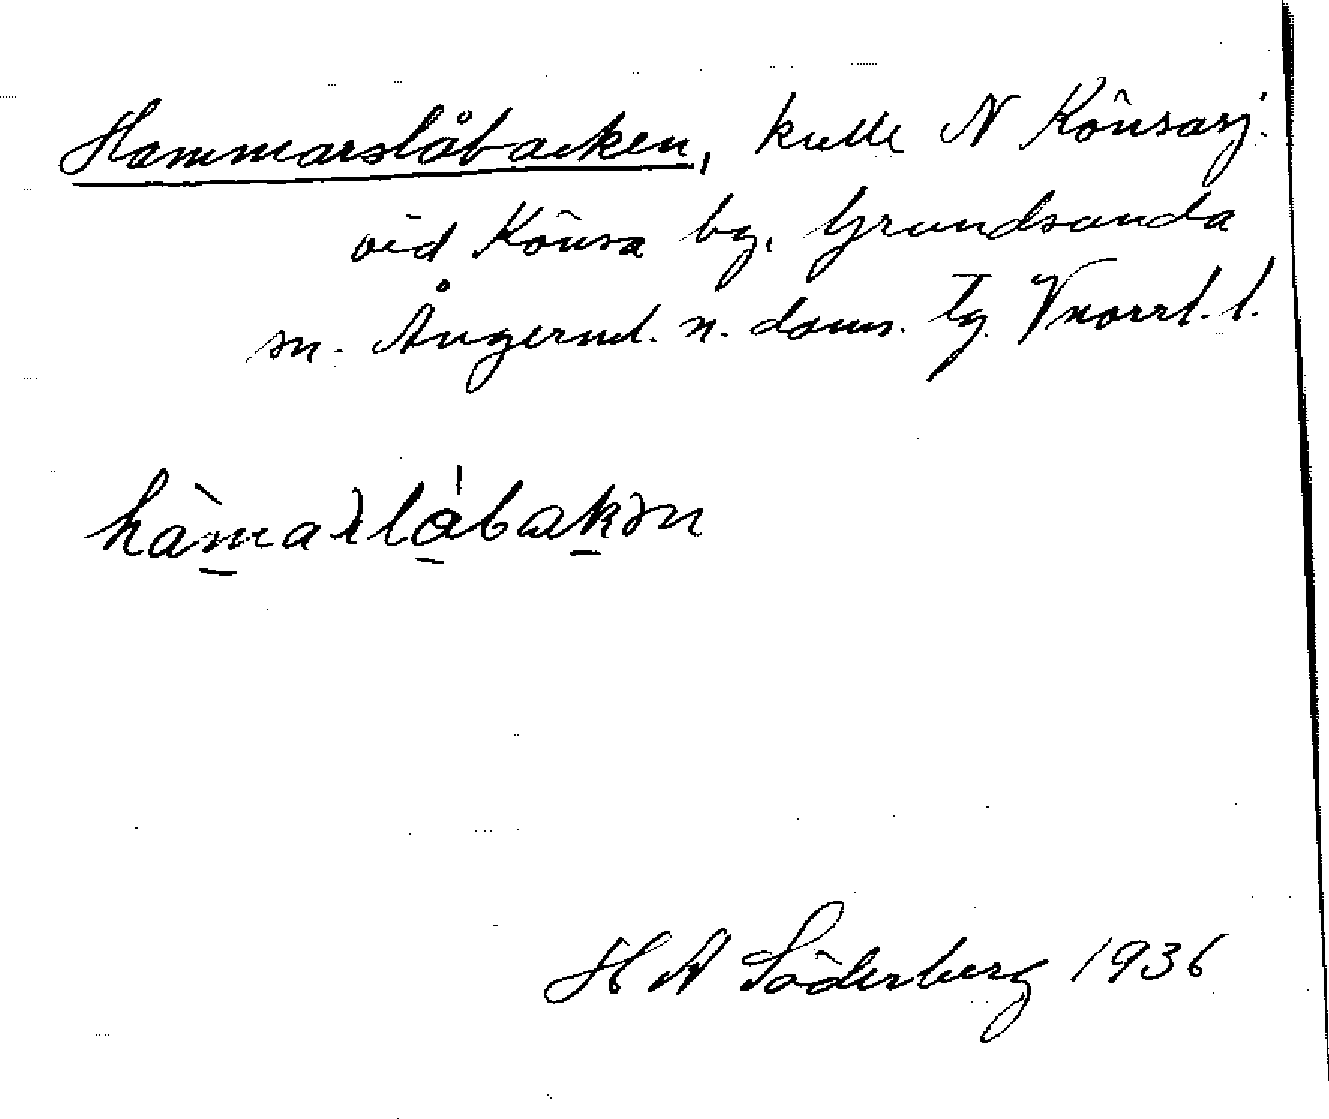 Hammarslåbacken, kulle N Könsasj.
vid Könsa by, Grundsunda
sn. Ångerml. n. doms. tg. Vnorrl. l.
hàmaṣlåbakən
H A Söderberg 1936